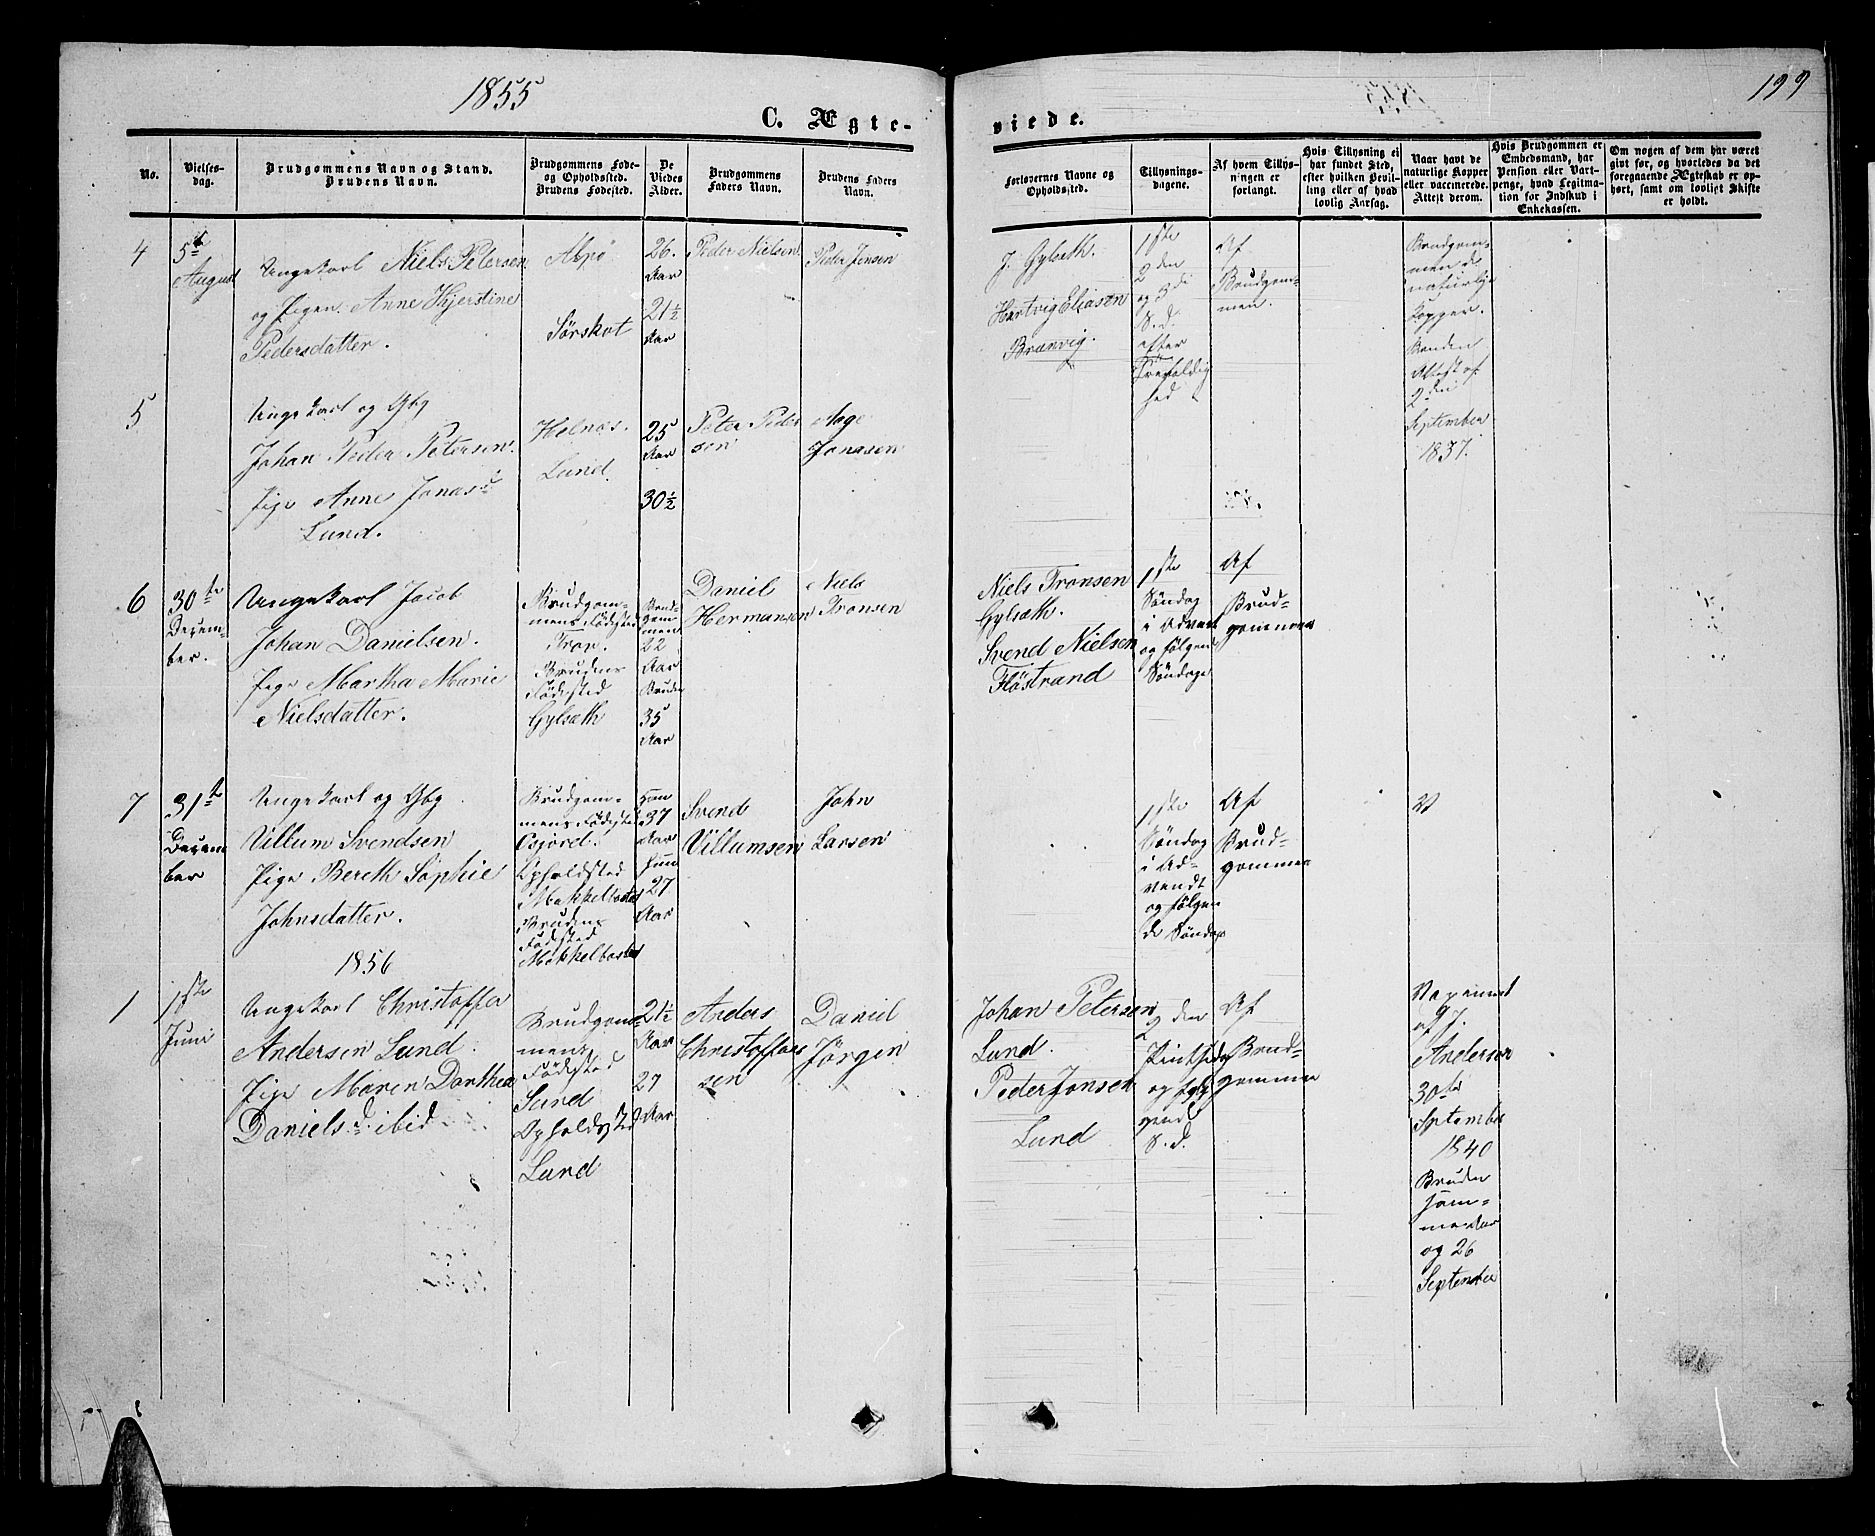 1855
199
C. Ægte-
viede.
No.
Vielses-
dag.
Brudgommens Navn og Stand.
Brudens Navn.
Brudgommens Føde-
og Opholdssted.
Brudens Fødested.
De
Viedes
Alder.
Brudgommens
Faders Navn.
Brudens Faders
Navn.
Forlovernes Navne og
Opholdssted.
Tillysnings-
dagene.
Af hvem Tillys-
ningen er
forlangt.
Hvis Tillysning ei
har fundet Sted,
efter hvilken Bevil-
ling eller af hvad
lovlig Aarsag.
Naar havt de
naturlige Kopper
eller vaccinerede.
Attest derom.
Hvis Brudgommen er
Embedsmand, har
Pension eller Vart-
penge, hvad Legitima-
tion for Indskud i
Enkekassen.
Om nogen af dem har været
givt før, og hvorledes da det
foregaaende Ægteskab er op-
hørt, samt om lovligt Skifte
er holdt.
4
5te
August
Ungekarl Niels Petersen
og Pigen Anne Kjerstine
Pedersdatter.
Alpø
Sørskot
26
Aar
21½
Aar
Peder Nielsen
Peder Jensen
J. Gylseth.
Hartvig Eliasen
Brænvig.
1ste
2den
og 3di
S.d.
efter
Trefoldig
hed
Af
Brudgom-
men.
Brudgom-
men de
naturlige
Kopper.
Bruden
Attest af
2den
September
1837.
5
Ungekarl og Gbg
Johan Peder Petersen.
Pige Anne Jonasd
Lund.
Helnæs.
Lund.
25
Aar
30½
Peter Peder
sen
Aage
Jonasen
6
30te
Decem-
ber.
Ungekarl Jacob
Johan Danielsen.
Pige Martha Marie
Nielsdatter.
Brudgom-
mens Fødested
Troe.
Brudens
Fødested
Gylseth
Brud-
gom-
men
22
Aar
Bruden
35
Aar
Daniel
Hermansen
Niels
Tronsen
Niels Tronsen
Gylseth.
Svend Nielsen
Flostrand
1ste
Søndag
i Advent
og følgende
Søndage
Af
Brud-
gommen
7
31te
Decem
ber
Ungekarl og Gbg
Villum Svendsen
Pige Bereth Sophie
Johnsdatter.
Brudgom-
mens Fødested
Osjord.
Opholdsted
Makkelbostad
Brudens
Fødested
Makkelbostad
Han
37
Aar
Hun
27
Aar
Svend
Villumsen
John
Larsen
1ste
Søndag
i Ad-
vendt
og følgen
de Søndage
Af
Brud-
gommen
V
1856
1
1ste
Juni
Ungekarl Christoffer
Andersen Lund.
Pige Maren Dorthea
Danielsd. ibid
Brudgom-
mens
Fødested
Lund
Opholdsted
Lund
21½
Aar
27
Aar
Anders
Christoffer
sen
Daniel
Jörgen
Johan Petersen
Lund.
Peder Jonsen
Lund
2den
Pintsedag
og føl-
gende
S.d.
Af
Brud-
gommen
Vaxineret
af J.
Andersen
30te
September
1840
Bruden
samme Aar
og 26
September